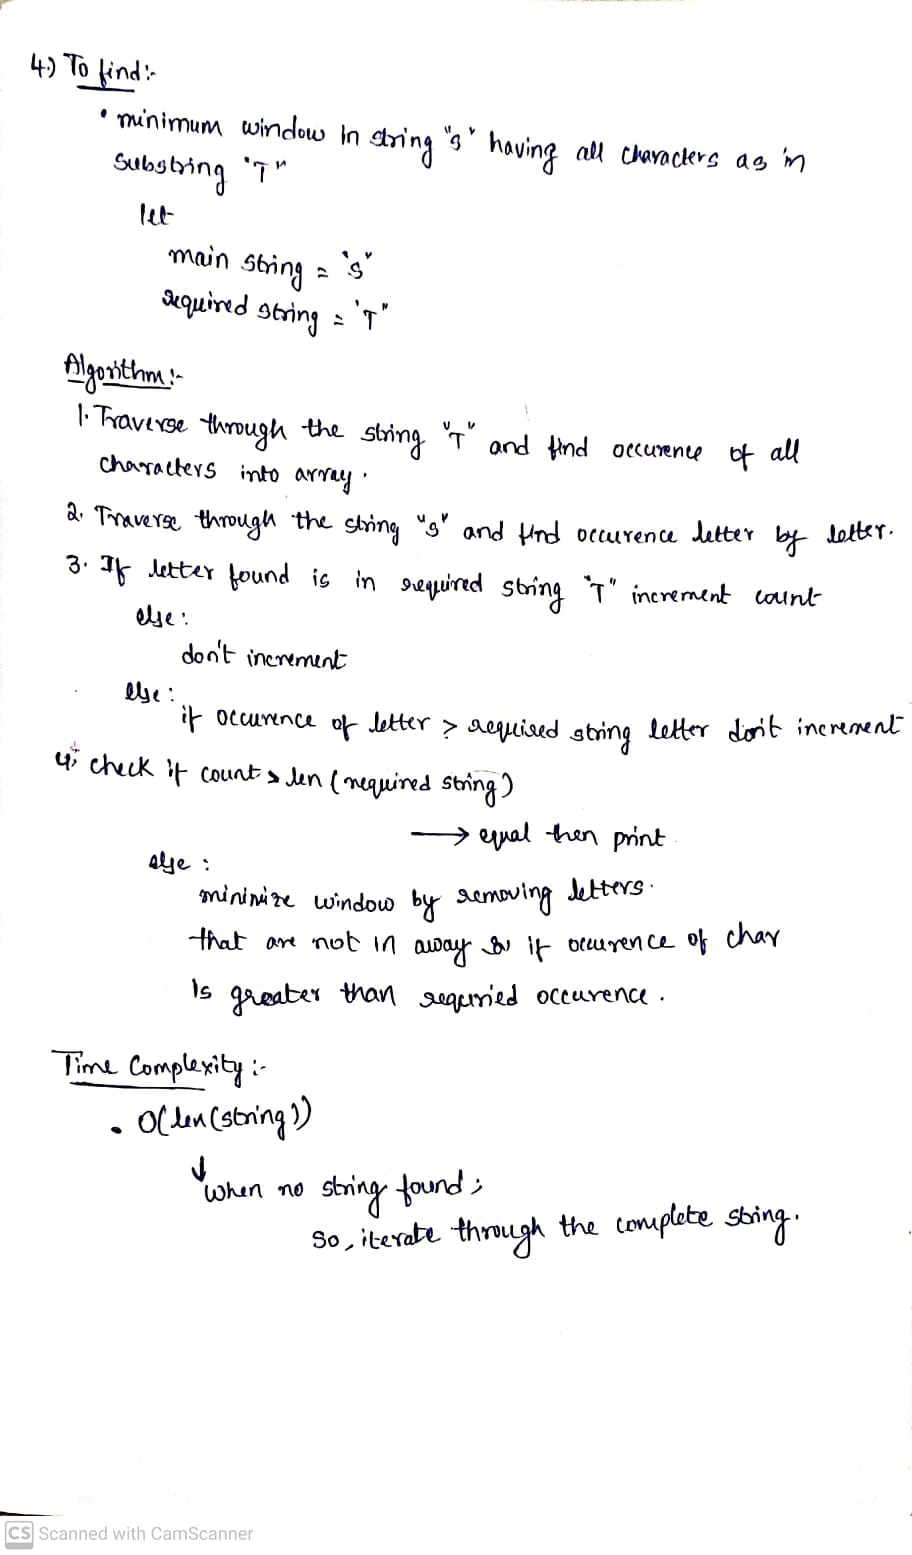 4.) To find :-
• minimum window in string "s" having all characters as in
Substring "T"
let
main string = "s"
required string = "T"
Algorithm :-
1. Traverse through the string "T" and find occurence of all
characters into array.
2. Traverse through the string "s" and find occurence letter by letter.
3. If letter found is in required string "T" increment count
else :
don't increment
else :
if occurence of letter > required string letter don't increment
4. check if count > len (required string)
→ equal then print
else :
minimize window by removing letters.
that are not in array or if occurence of char
Is greater than required occurence .
Time Complexity :-
• O(len(string))
↓
when no string found ;
So, iterate through the complete string.
CS Scanned with CamScanner